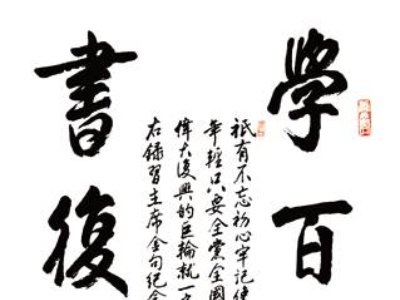 學百
祇有不忘初心牢記使
年輕只要全黨全國
偉大復興的巨輪就一定
右錄習主席金句紀念
書復